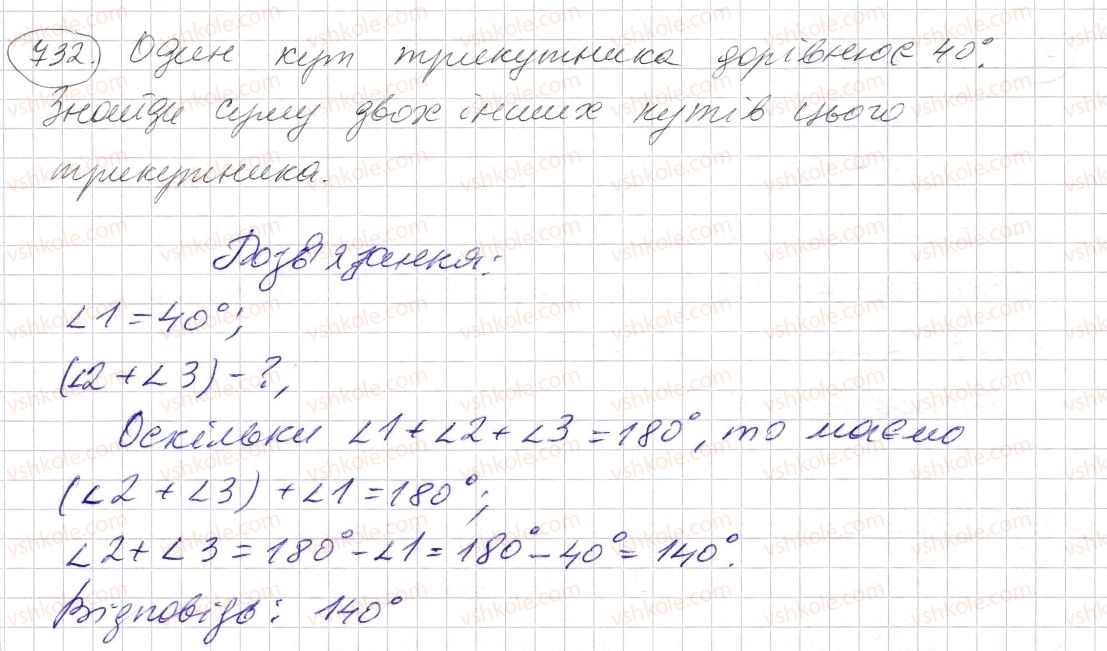 732. Один кут трикутника дорівнює 40°.
Знайди суму двох інших кутів цього
трикутника.
Розв'язання:
∠1 = 40°;
(∠2 + ∠3) - ?,
Оскільки ∠1 + ∠2 + ∠3 = 180°, то маємо
(∠2 + ∠3) + ∠1 = 180°;
∠2 + ∠3 = 180° - ∠1 = 180° - 40° = 140°.
Відповідь: 140°